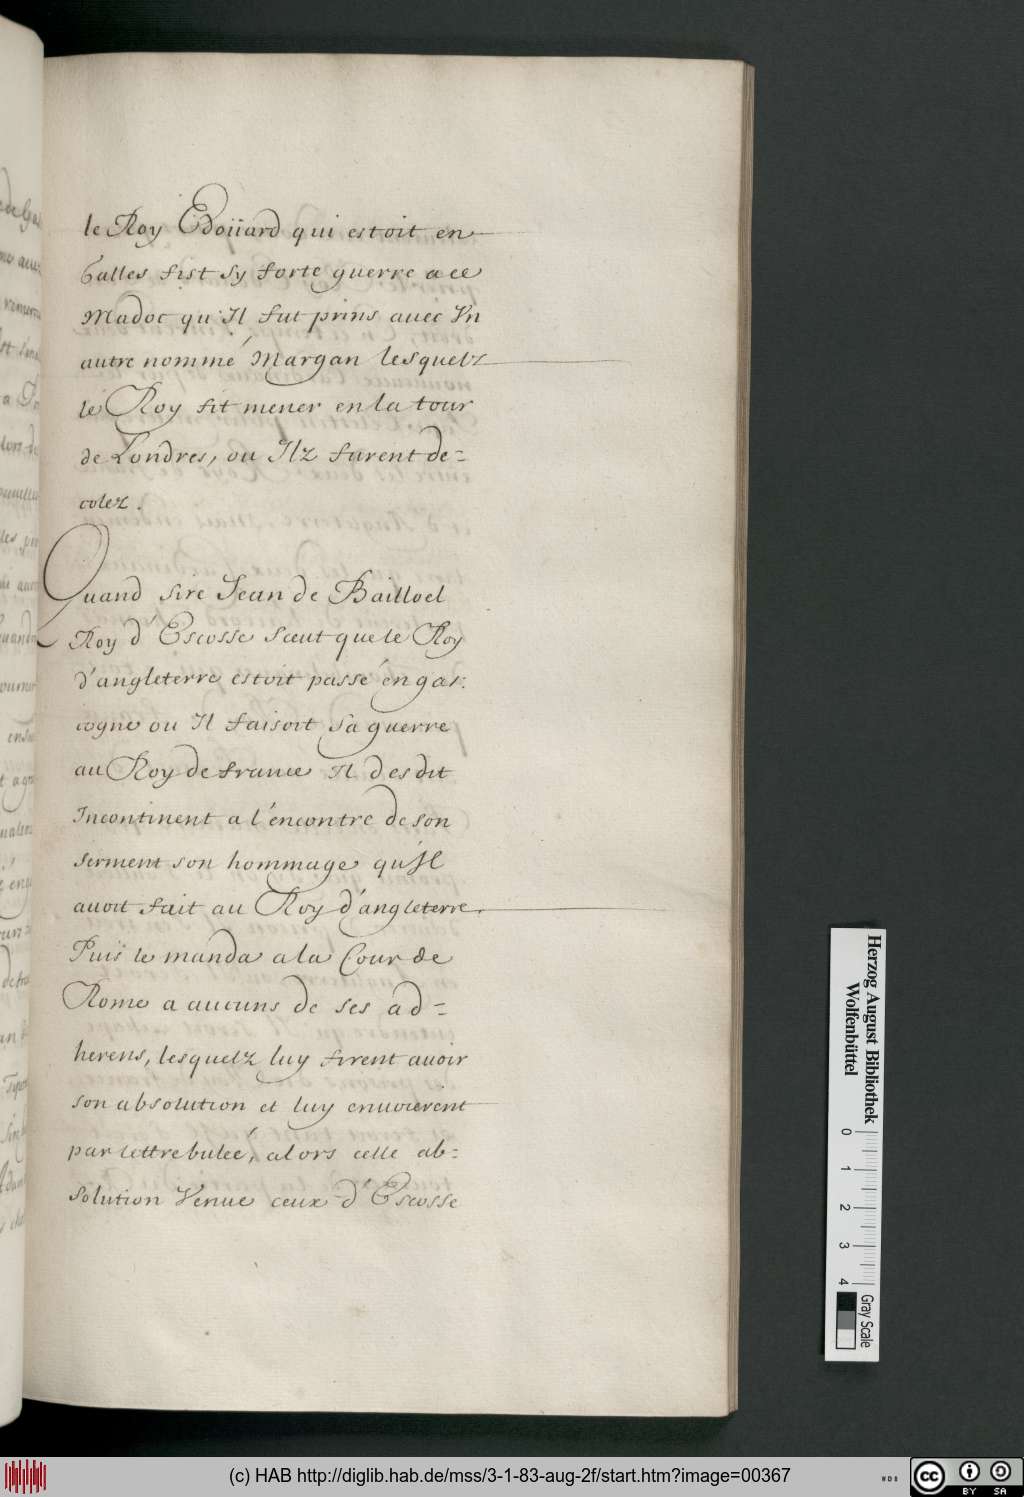 le Roy Edoüard qui estoit en
Galles fist sy forte guerre a ce
Madoc qu'Il fut prins avec Vn
autre nommé Margan lesquelz
le Roy fit mener en la tour
de Londres, ou Ilz furent de=
colez.
Quand sire Jean de Bailloel
Roy d'Escosse sceut que le Roy
d'angleterre estoit passé en gas:
cogne ou Il faisoit sa guerre
au Roy de france Il desdit
Incontinent a l'encontre de son
serment son hommage qu'Il
auoit fait au Roy d'angleterre.
Puis le manda a la Cour de
Rome a aucuns de ses ad=
herens, lesquelz luy firent auoir
son absolution et luy enuoierent
par lettre bulée, alors celle ab=
solution Venue ceux d'Escosse
Herzog August Bibliothek
Wolfenbüttel
0 1 2 3 4
Gray Scale
(c) HAB http://diglib.hab.de/mss/3-1-83-aug-2f/start.htm?image=00367
WDB
cc BY SA